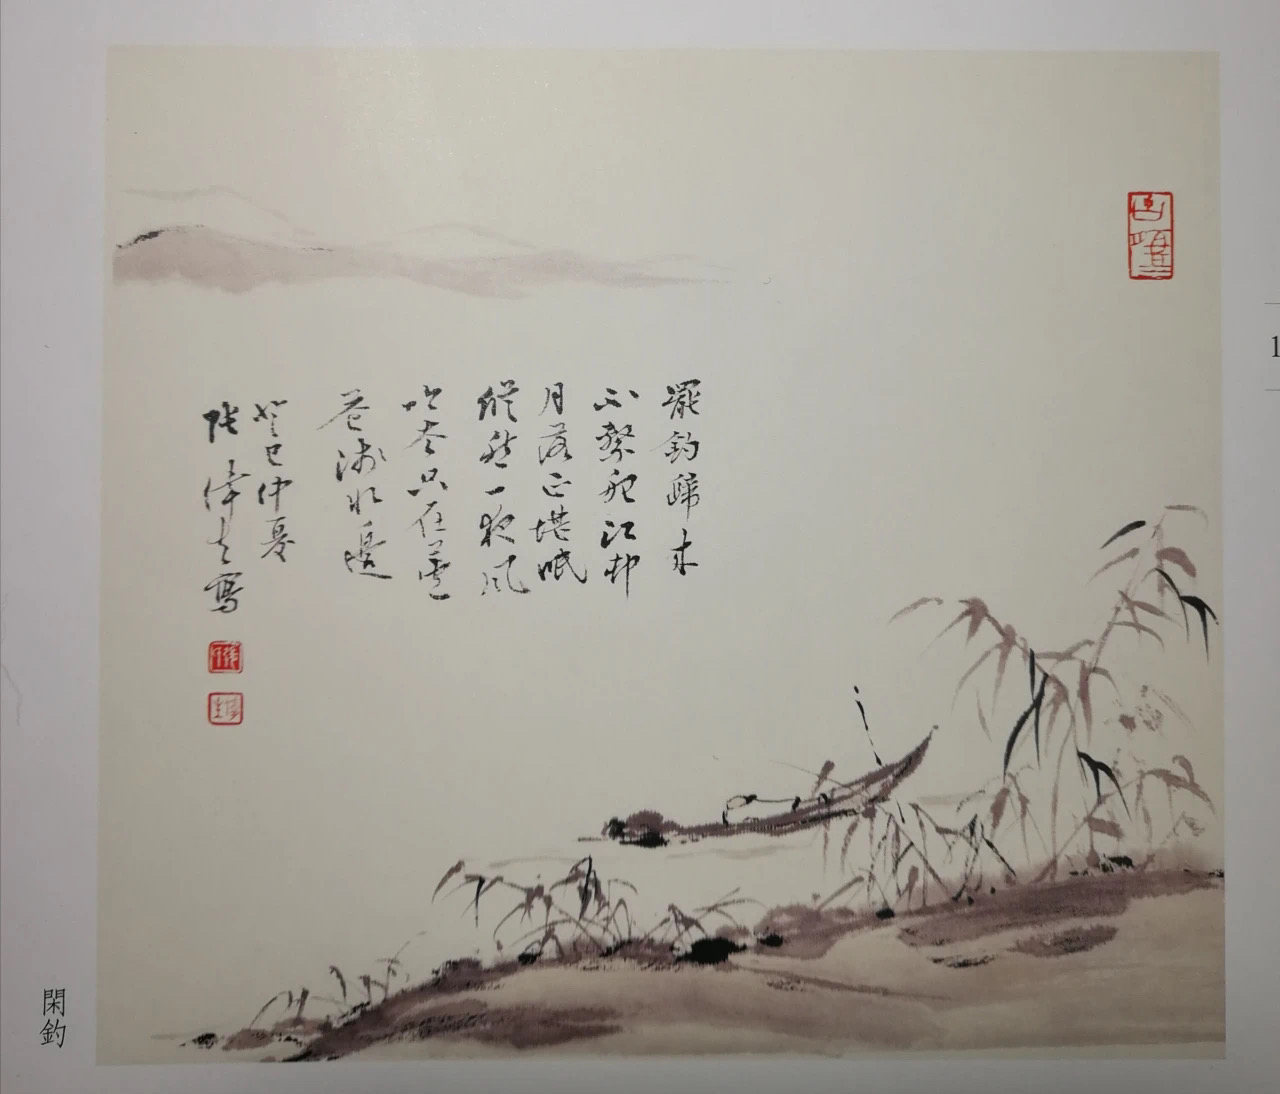 罷釣歸来
不繫船江邨
月落正堪眠
縱然一夜風
吹去只在蘆
花淺水邊
癸巳仲夏
張偉寫
閑釣
1